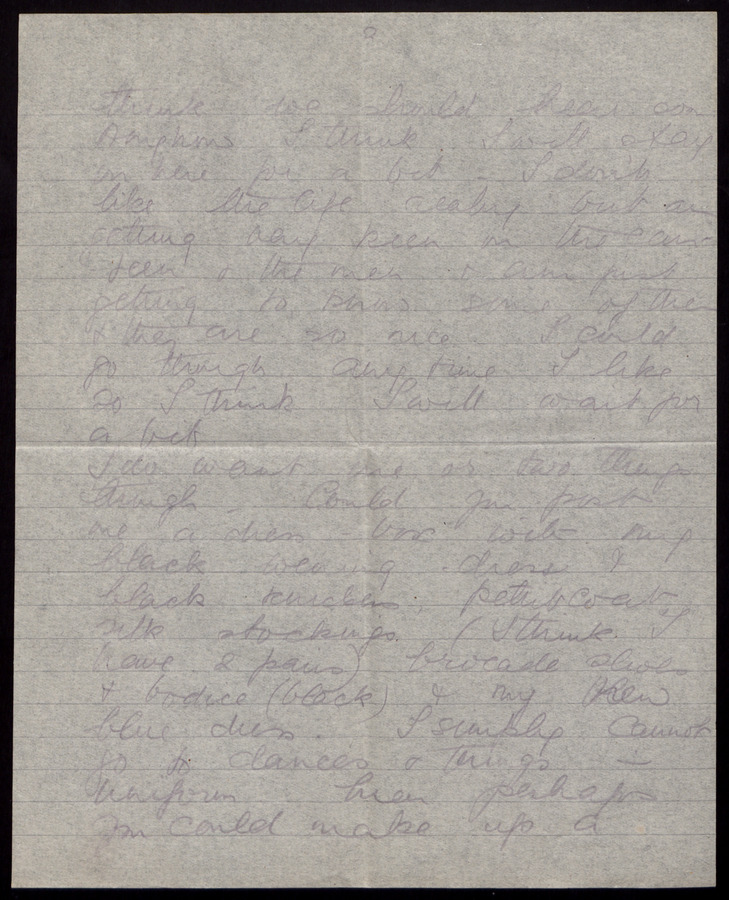 2
think we should hear on
I think I will stay
on here for a bit - I don't
like the life really but am
getting very keen on the Can-
teen & the men & am just
getting to know some of them
& they are so nice. I could
go though any time I like
so I think I will wait for
a bit
I do want one or two things
though - Could you post
me a dress-box with my
black evening dress &
black knickers, petticoat,
silk stockings. (I think I
have 2 pairs) brocade shoes
& bodice (black) & my new
blue dress. I simply cannot
go to dances & things in
uniform. Then perhaps
you could make up a